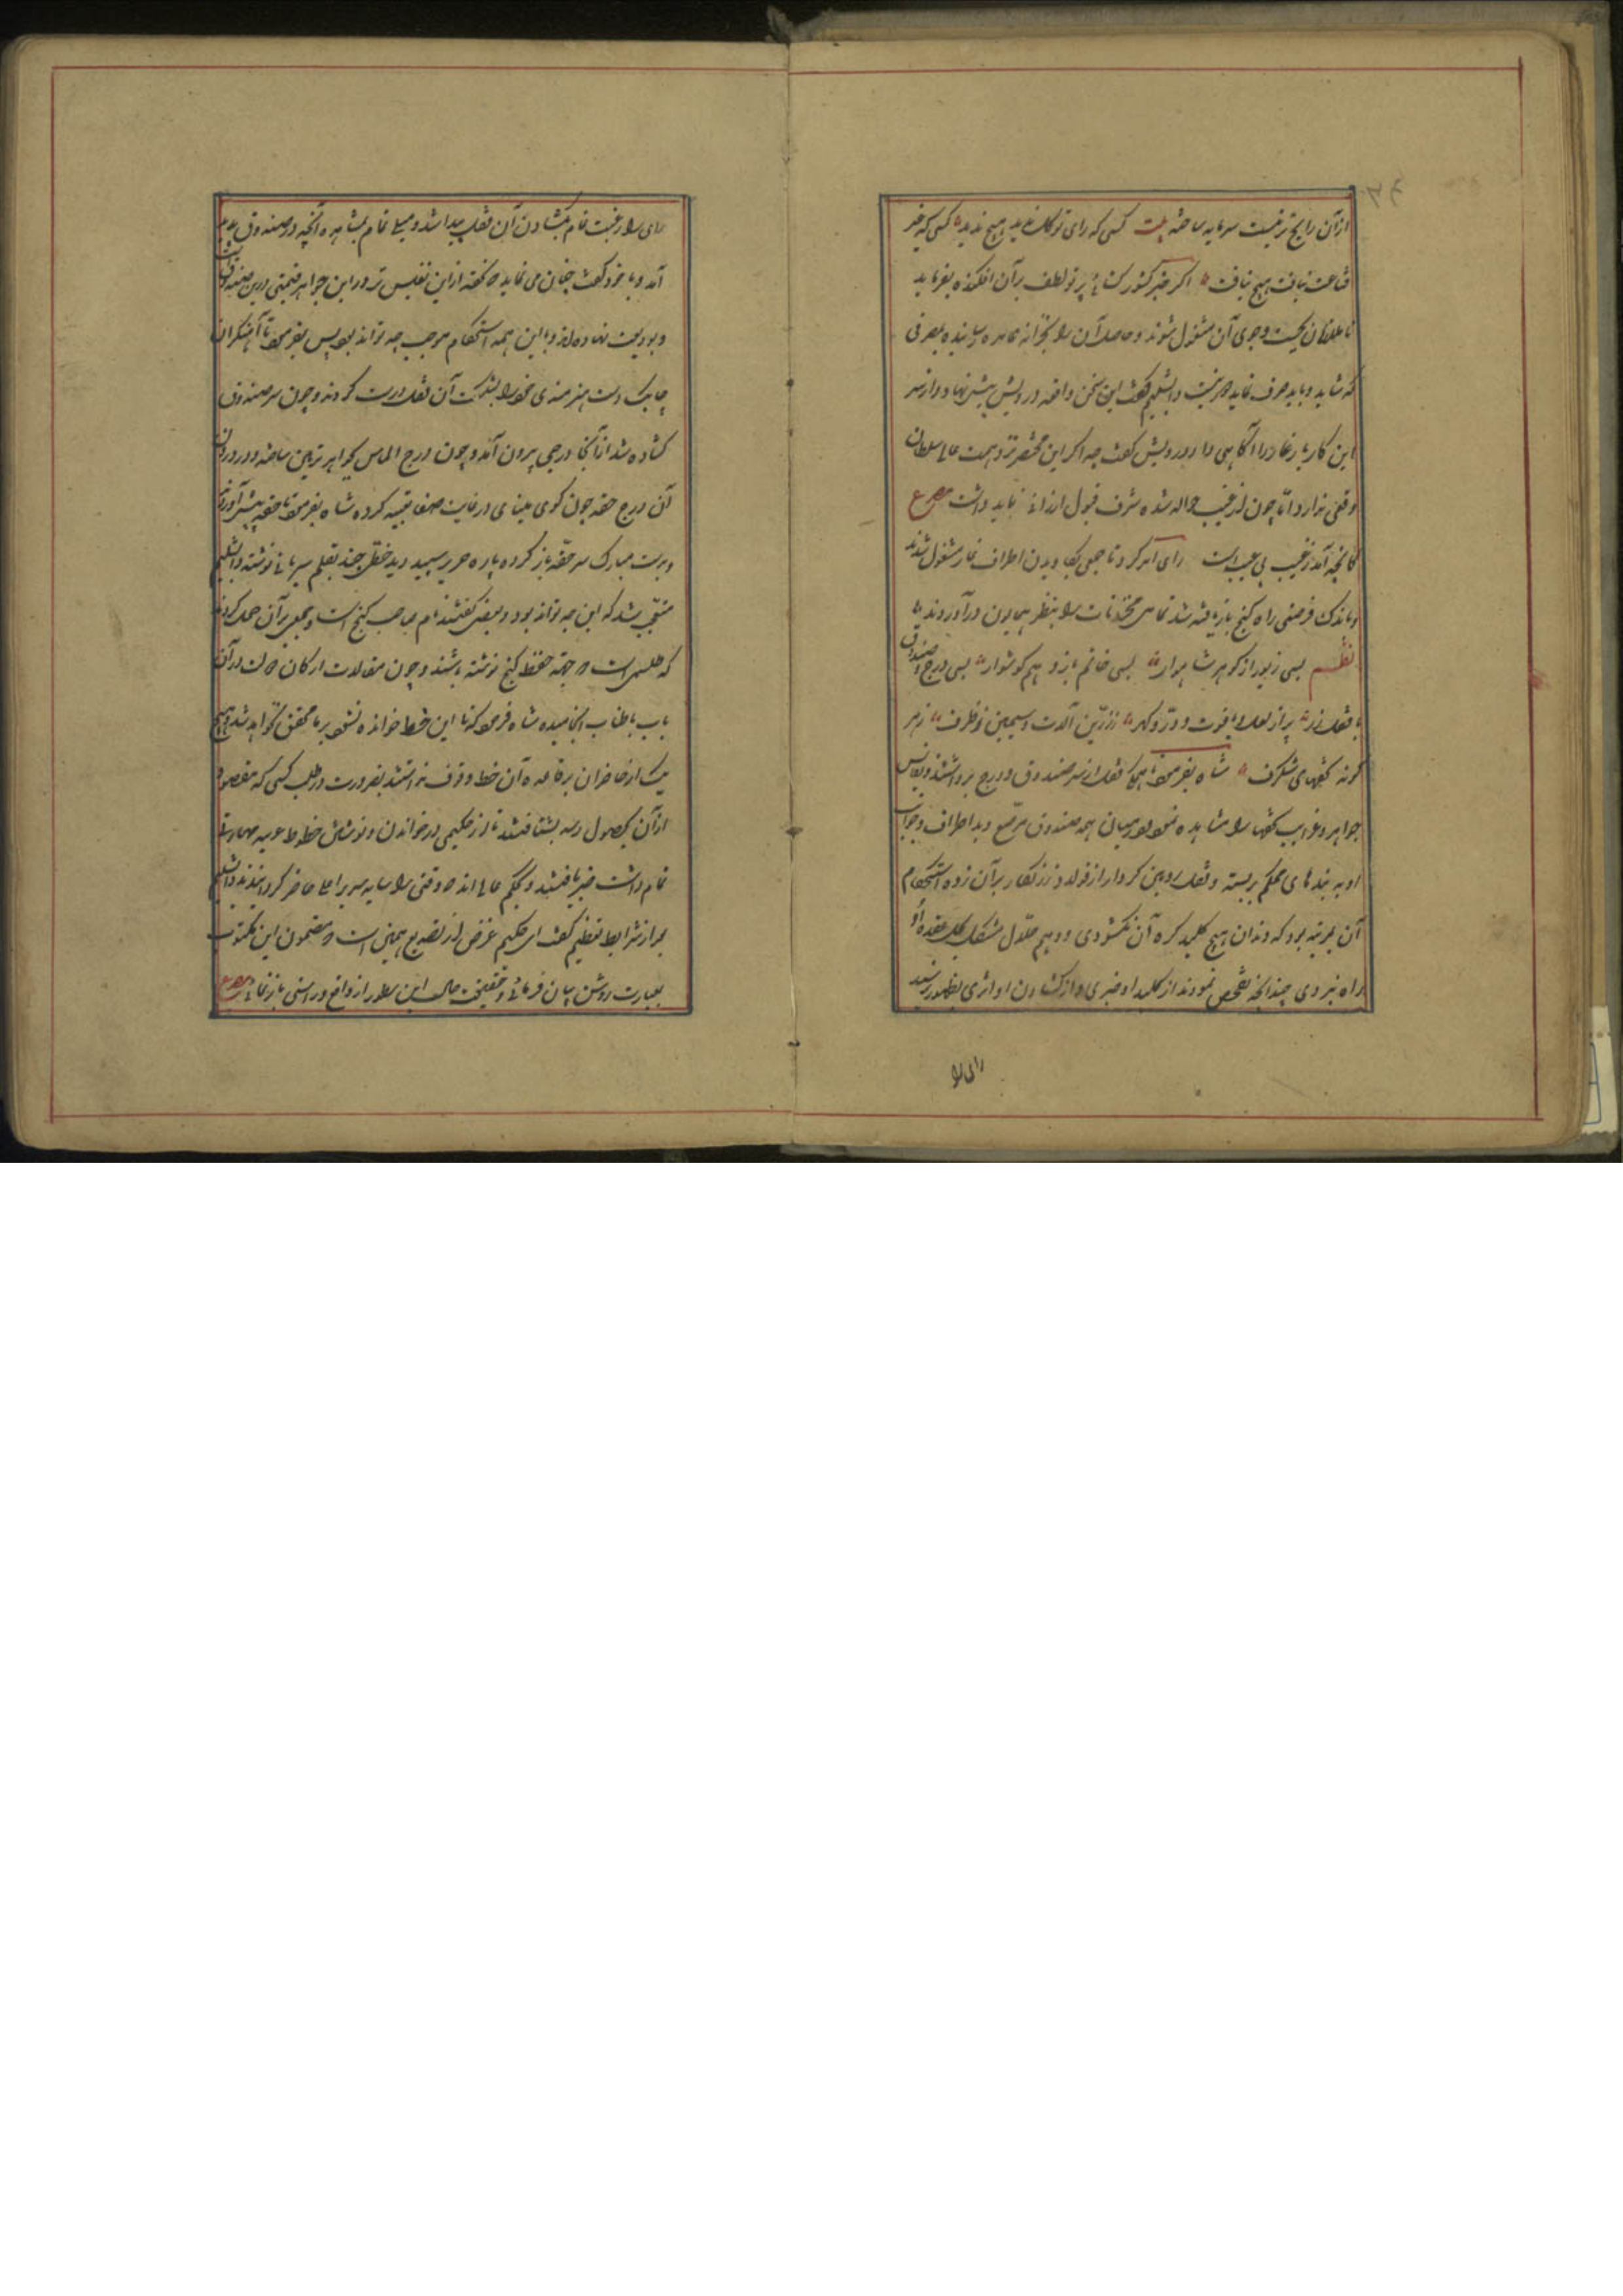 ازآن رایج تر نیست سرمایه ساخته بیت کسی که رای توکل ندید هیچ ندید کسی که خیر
قناعت نیافت هیچ نیافت اکر خسرو کشورکشای پرتو لطف برآن افکنده بفرماید
تا ملازمان بجست وجوی آن مشغول شوند وحاصل آن را بخزانه عامره رسانیده بمصرفی
که شاید وباید صرف نماید دور نیست دابشلیم کفت این سخن واقعه درویش پیش نهاد واز سر
این کار یار غار را آکاهی داد درویش کفت چه اکر این محقر نزد همت عالی سلطان
وقعی ندارد اما چون از غیب حواله شده شرف قبول ارزانی باید داشت مصرع
کانچه آید زغیب بی عیب است رای امر کرد تا جمعی بکاویدن اطراف غار مشغول شدند
وباندک فرصتی راه کنج بازیافته شد تمامی مخزونات را بنظر همایون درآوردند
نظم بسی زیور از کوهر شاهوار بسی خاتم یاره وهم کوشوار بسی درج وصندوق
با قفل زر پر از لعل ویاقوت ودر وکهر ززرین آلات وسیمین ظروف زهر
کونه تحفهای شکرف شاه بفرمود تا قفل از سر صندوق ودرج برداشتند ونفایس
جواهر وغرایب تحفها را مشاهده نمود ودر میان همه صندوقی مرصع دید اطراف وجوانب
او به بندهای محکم بربسته وقفل رومین کردار از فولاد زرنکار برآن زده استحکام
آن بمرتبه بود که دندان هیچ کلید کره آن نکشودی ووهم حلال مشکل بحل عقده او
راه نبردی چندانچه تفحص نمودند از کلید او خبری واز کشادن او اثری بظهور نرسید
رای را
رای را رغبت تمام بکشادن آن قفل پیدا شد ومیل تمام بمشاهده آنچه در صندوق بود پدید
آمد وبا خود کفت چنان می نماید که تحفه ازین نفیس تر ورای این جواهر قیمتی درین صندوق
وبودیعت نهاده اند واین همه استحکام موجب چه تواند بود پس بفرمود تا آهنکران
چابک دست هنرمندی خود را بشکست آن قفل درست کردند وچون سر صندوق
کشاده شد از آنجا درجی بیرون آمد وچون درج الماس بجواهر تزیین ساخته ودر درون
آن درج حقه چون کوی مینای در غایت صفا تعبیه کرده شاه بفرمود تا حقه پیش آوردند
وبدست مبارک سر حقه باز کرده پاره حریر سپید دید خطی چند بقلم سریانی نوشته دابشلیم
متعجب شد که این چه تواند بود وبعضی کفتند نام صاحب کنج است وجمعی برآن حمل کردند
که طلسمی است که جهة حفظ کنج نوشته باشند وچون مقولات ارکان دولت درآن
باب باطناب انجامیده شاه فرمود که تا این خط خوانده نشود بر ما محقق نخواهد شد وهیچ
یک از حاضران برقاعده آن خط وقوف نداشتند بضرورت در طلب کسی که مقصود
ازآن بحصول رسد بشتافتند تا از حکیمی درخواندن ونوشتن خطوط غریبه مهارت
تمام داشت خبر یافتند وبحکم عالی اندک وقتی را بپایه سریر اعلی حاضر کردانیدند دابشلیم
بعد از شرایط تعظیم کفت ای حکیم غرض از تصدیع همین است که مضمون این مکتوب
بعبارت روشن بیان فرمائی وحقیقت حال این سطور از واقع وراستی بازنمائی مصرع